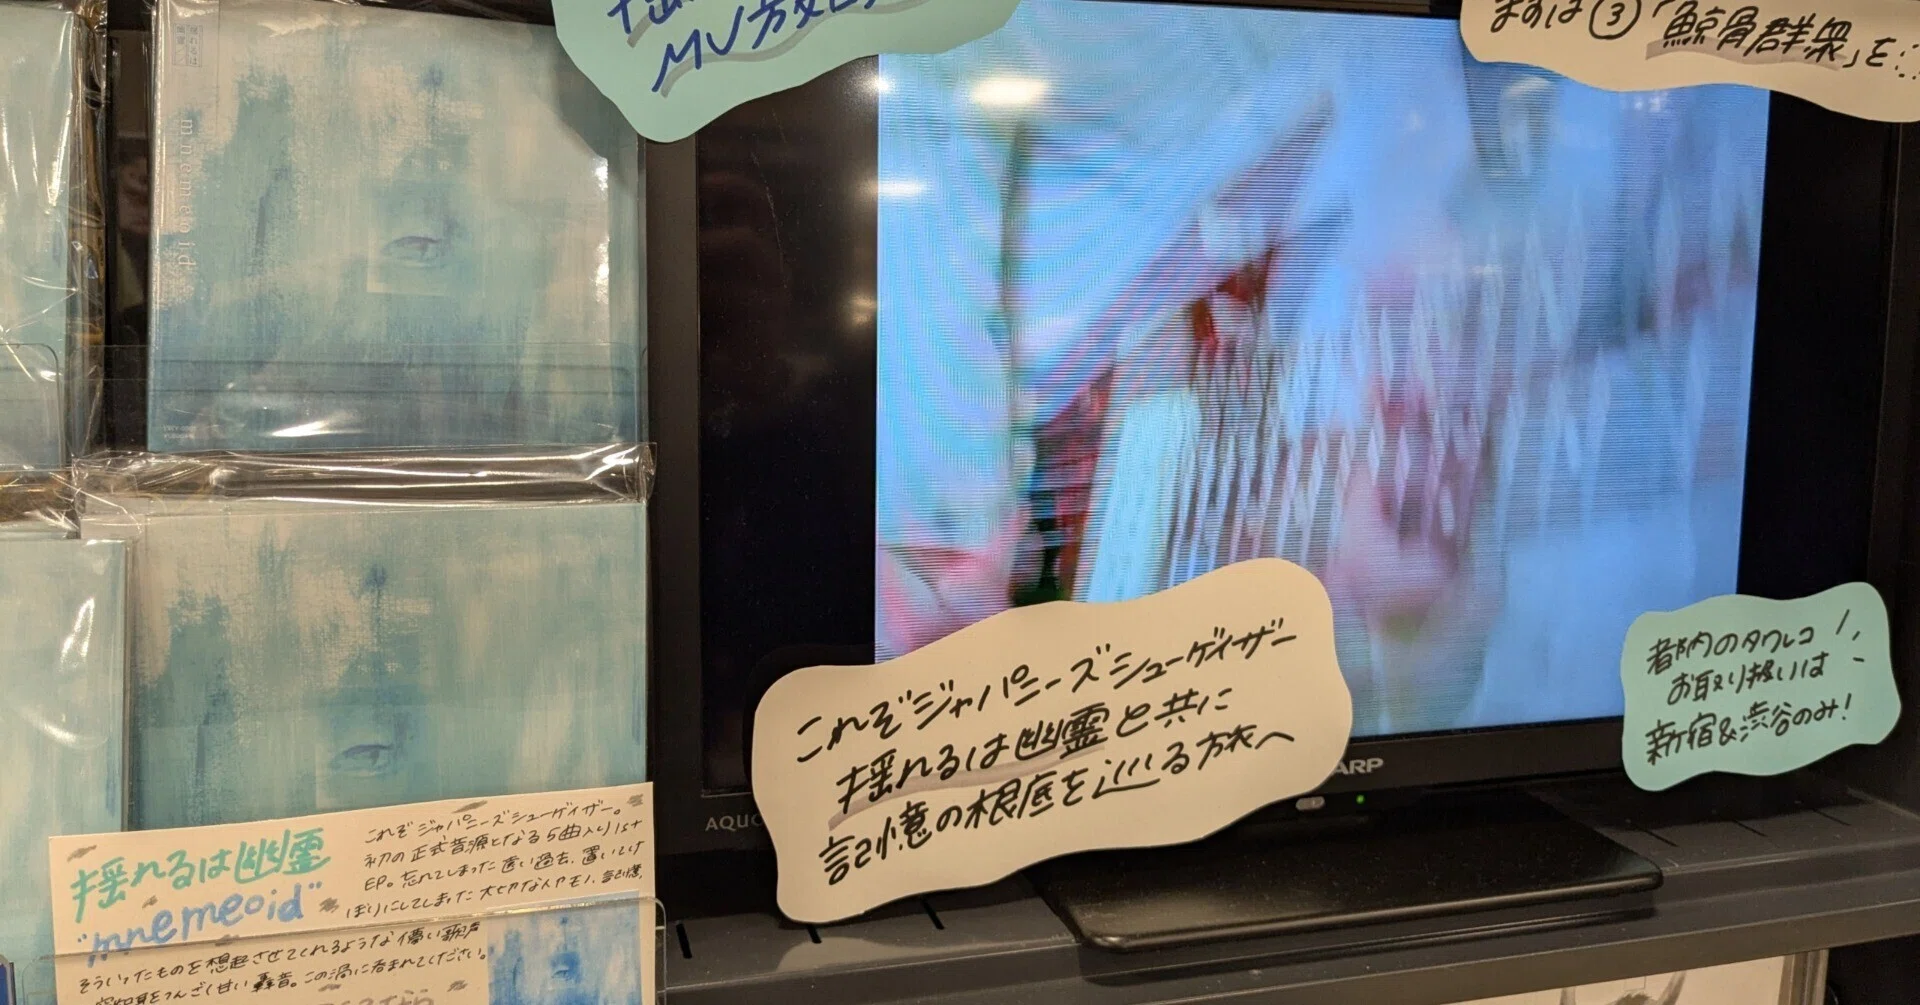 MV放
まずは③「鯨骨群衆」を
揺れるは
幽霊
mnemeoid
これぞジャパニーズシューゲイザー
揺れるは幽霊と共に
記憶の根底を巡る旅へ
都内のタワレコ
お取り扱いは
新宿&渋谷のみ!
ARP
AQUO
揺れるは幽霊
"mnemeoid"
これぞジャパニーズシューゲイザー。
初の正式音源となる5曲入り1st
EP。忘れてしまった遠い過去、置いてけ
ぼりにしてしまった大切な人やモノ、記憶。
そういったものを想起させてくれるような儚い歌声
をつんざく甘い轟音。この渦に呑まれてください。